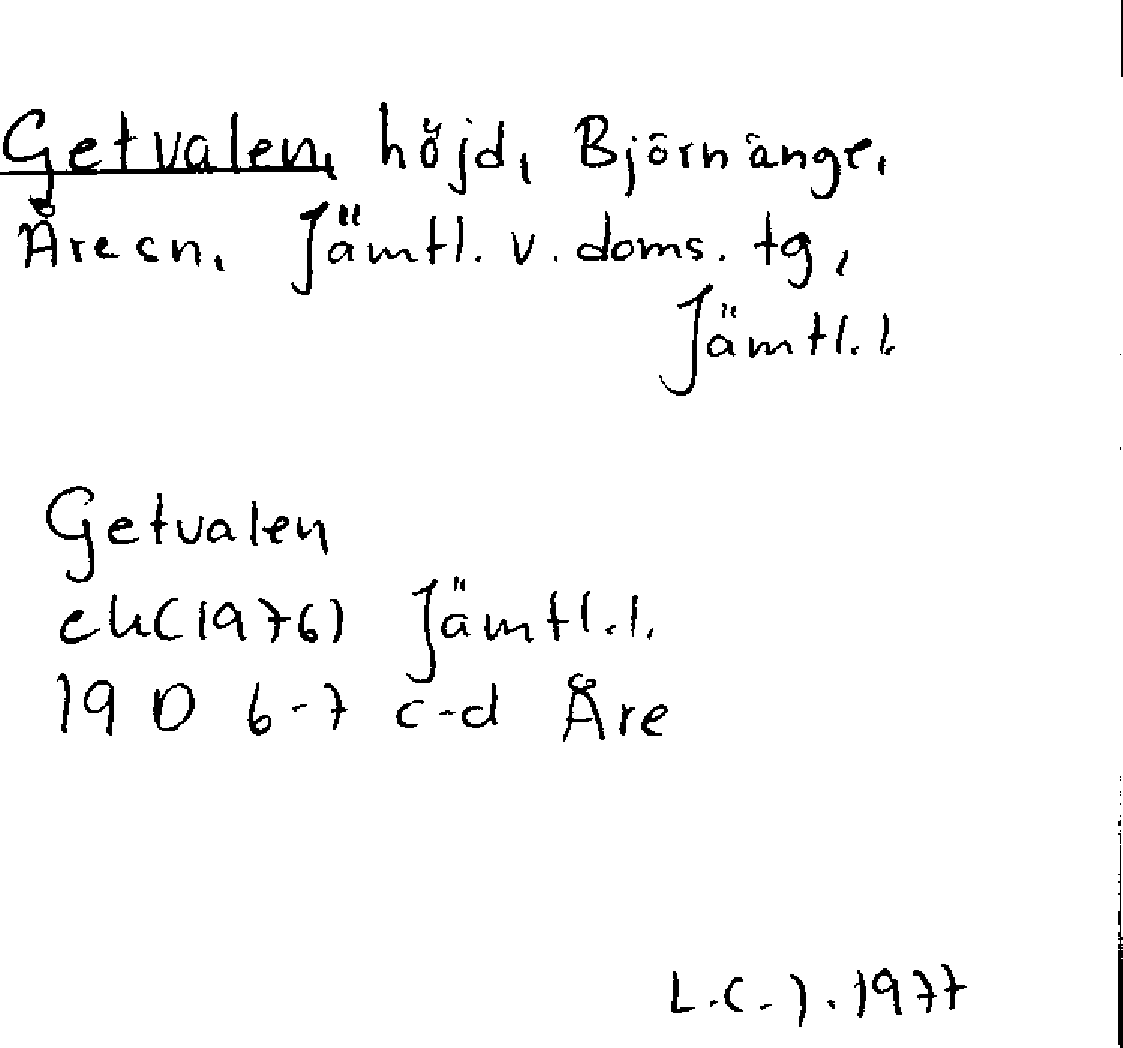 Getvalen, höjd, Björnänge,
Åre sn, Jämtl. v. doms. tg,
Jämtl. l.
Getvalen
ek (1976) Jämtl. l.
19 D 6-7 c-d Åre
L.C.J. 1977